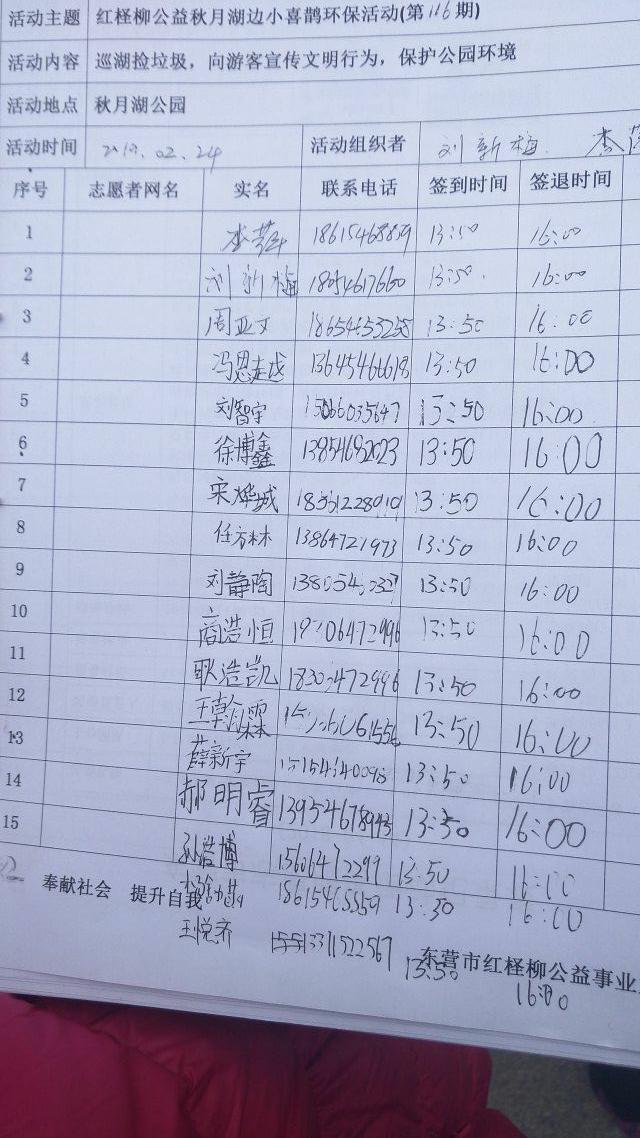 活动主题 红柽柳公益秋月湖边小喜鹊环保活动(第116期)
活动内容 巡湖捡垃圾，向游客宣传文明行为，保护公园环境
活动地点 秋月湖公园
活动时间 2019.02.24 活动组织者 刘新梅 李
序号 志愿者网名 实名 联系电话 签到时间 签退时间
1 18615468859 13:50 16:00
2 刘新梅 18054617660 13:50 16:00
3 周亚文 18654653258 13:50 16:00
4 冯恩 13645466618 13:50 16:00
5 刘智宇 15066035647 13:50 16:00
6 徐博鑫 13854682023 13:50 16:00
7 宋 城 13:50 16:00
8 任方林 13864721973 13:50 16:00
9 刘静陶 13:50 16:00
10 商浩恒 13:50 16:00
11 耿浩凯 13:50 16:00
12 王 霖 13:50 16:00
13 薛新宇 13:50 16:00
14 郝明睿 13954678943 13:50 16:00
15 孙浩博 15606472299 13:50 16:00
奉献社会 提升自我 13:50 16:00
王悦齐 13:50 16:00
东营市红柽柳公益事业